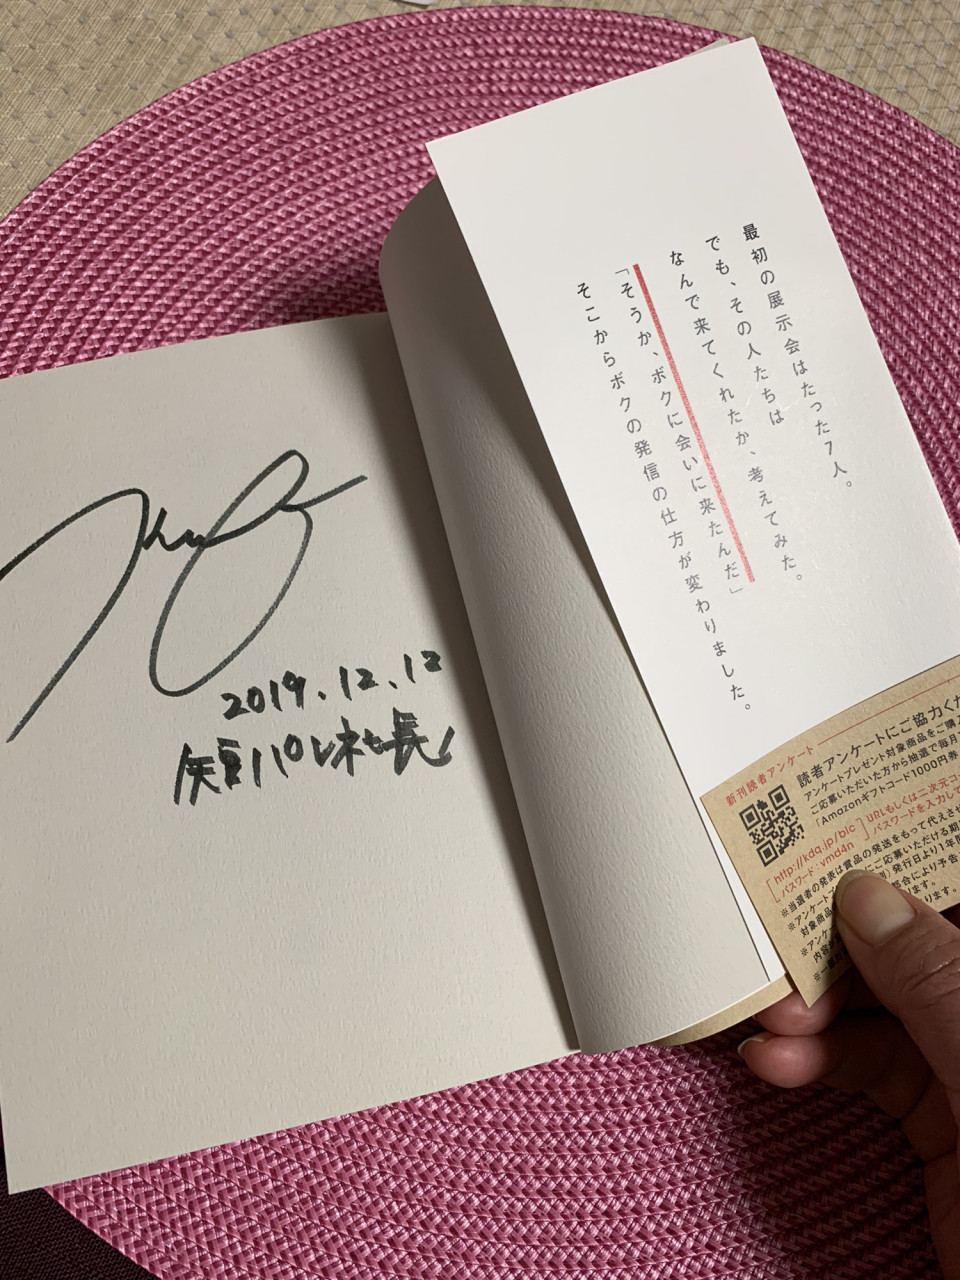 最初の展示会はたった7人。
でも、その人たちは
なんで来てくれたか、考えてみた。
「そうか、ボクに会いに来たんだ」
そこからボクの発信の仕方が変わりました。
2019.12.12
短パン社長
新刊読者アンケート
読者アンケートにご協力くだ
アンケートプレゼント対象商品をご購入
ご応募いただいた方から抽選で毎月
「Amazonギフトコード1000円券
http://kdq.jp/bic
パスワード:vmd4n
URLもしくは二次元コ
パスワードを入力して
※当選者の発表は賞品の発送をもって代えさせ
にご応募いただける期
対象商品
発行日より1年間
都合により予告